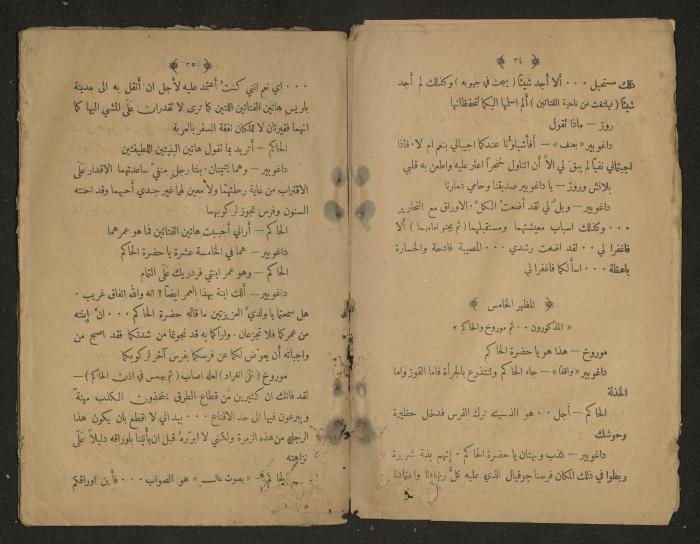 ﴿ ٣٤ ﴾
ذلك مستحيل ٠٠٠ ألا أجد شيئًا ( يبحث في جيوبه ) وكذلك لم أجد
شيئًا ( فيلتفت من ناحية الفتاتين ) ألم اسلمها اليكما لتحفظانها
روز — ماذا تقول
داغوبير «بعنف» — أفأشياؤنا عندكما اجيباني بنعم ام لا ٠ فاذا
اجبتماني نفيًا لم يبقَ لي الاَّ أن اتناول خنجرًا اعثر عليه واطعن به قلبي
بلانش وروز — يا داغوبير صديقنا وحامي ذمارنا
داغوبير — ويلٌ لي لقد أضعتُ الكلَّ ٠ الاوراق مع التحارير
٠٠٠ وكذلك اسباب معيشتهما ومستقبلهما ( ثم يجثو امامهما ) ألا
فاغفرا لي ٠٠ لقد اضعت رشدي ٠٠٠ المصيبة فادحة والخسارة
باهظة ٠٠٠ اسألكما فاغفرا لي
﴿ المظهر الخامس ﴾
« المذكورون ٠٠ ثم موروخ والحاكم »
موروخ — هذا هو يا حضرة الحاكم
داغوبير «واقفًا» — جاء الحاكم ولنتذرع بالجرأة فاما الفوز واما
الخذلة
الحاكم — أجل ٠٠ هو الذي ترك الفرس فدخل حظيرة
وحوشك
داغوبير — كذب وبهتان يا حضرة الحاكم ٠ إنهم بنية شريرة
ربطوا في ذلك المكان فرسنا جوفيال الذي عليه كلُّ رجاءنا واعتمادنا
﴿ ٣٥ ﴾
٠٠٠ اي نعم انني كنتُ أعتمد عليه لاجل ان أنقل به الى مدينة
باريس هاتين الفتاتين اللتين كما ترى لا تقدران على المشي اليها كما
انهما فقيرتان لا تملكان نفقة السفر بالعربة
الحاكم — أتريد بما تقول هاتين البنيتين اللطيفتين
داغوبير — وهما يتيمتان ٠ بنتا رجل منفيّ ساعدتهما الاقدار عَلَى
الاقتراب من غاية رحلتهما ولا معين لها غير جندي أحبهما وقد احنته
السنون وفرس عجوز لركوبهما
الحاكم — أراني أحببت هاتين الفتاتين فما هو عمرهما
داغوبير — هما في الخامسة عشرة يا حضرة الحاكم
الحاكم — وهو عمر ابنتي فردريك عَلَى التمام
داغوبير — ألك ابنة بهذا العمر ايضًا ؟ انه والله اتفاق غريب ٠
هل سمعتما يا ولديَّ العزيزتين ما قاله حضرة الحاكم ٠٠٠ انَّ ابنته
من عمركما فلا تجزعان ٠ واراكما به قد نجوتما من شدتكما فقد اصبح من
واجباته أن يعوّض لكما عن فرسكما بفرس آخر لركوبكما
موروخ ( عَلَى انفراد ) لعله اصاب ( ثم يهمس في اذن الحاكم ) —
لقد فاتك ان كثيرين من قطاع الطرق يتخذون الكذب مهنةً
ويبرعون فيها الى حد الاقناع ٠٠٠ بيد اني لا اقطع بان يكون هذا
الرجل من هذه الزمرة ولكني لا ابررهُ قبل ان يأتينا باوراقه دليلاً عَلَى
نزاهته
الحاكم — «بصوت عالٍ» هو الصواب ٠٠٠ فأين اوراقكم